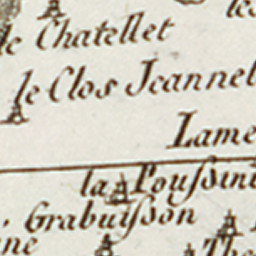 le Chatellet
le Clos Jeannel
Lame
la Poussini
Grabuisson